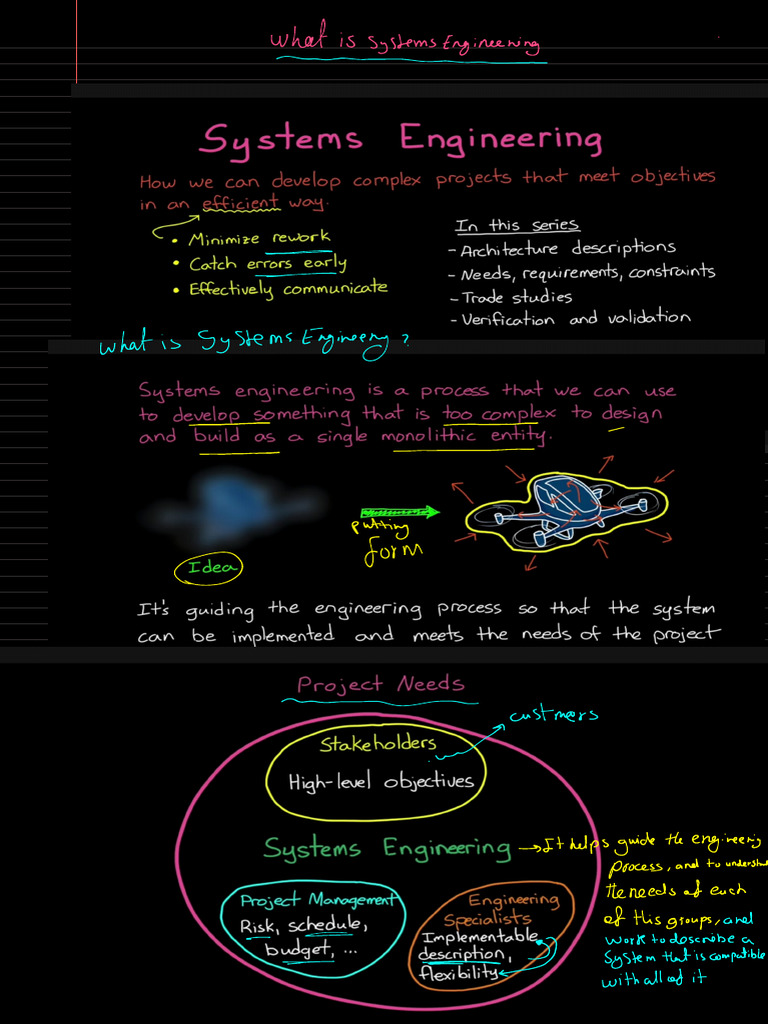 What is Systems Engineering
Systems Engineering
How we can develop complex projects that meet objectives
in an efficient way.
• Minimize rework
• Catch errors early
• Effectively communicate
In this series
- Architecture descriptions
- Needs, requirements, constraints
- Trade studies
- Verification and validation
What is Systems Engineery?
Systems engineering is a process that we can use
to develop something that is too complex to design
and build as a single monolithic entity.
putting
form
Idea
It's guiding the engineering process so that the system
can be implemented and meets the needs of the project
Project Needs
custmers
Stakeholders
High-level objectives
Systems Engineering
It helps guide the engineering
process, and to understand
the needs of each
of this groups, and
work to describe a
system that is compatible
with all of it
Project Management
Risk, schedule,
budget, ...
Engineering
Specialists
Implementable
description,
flexibility